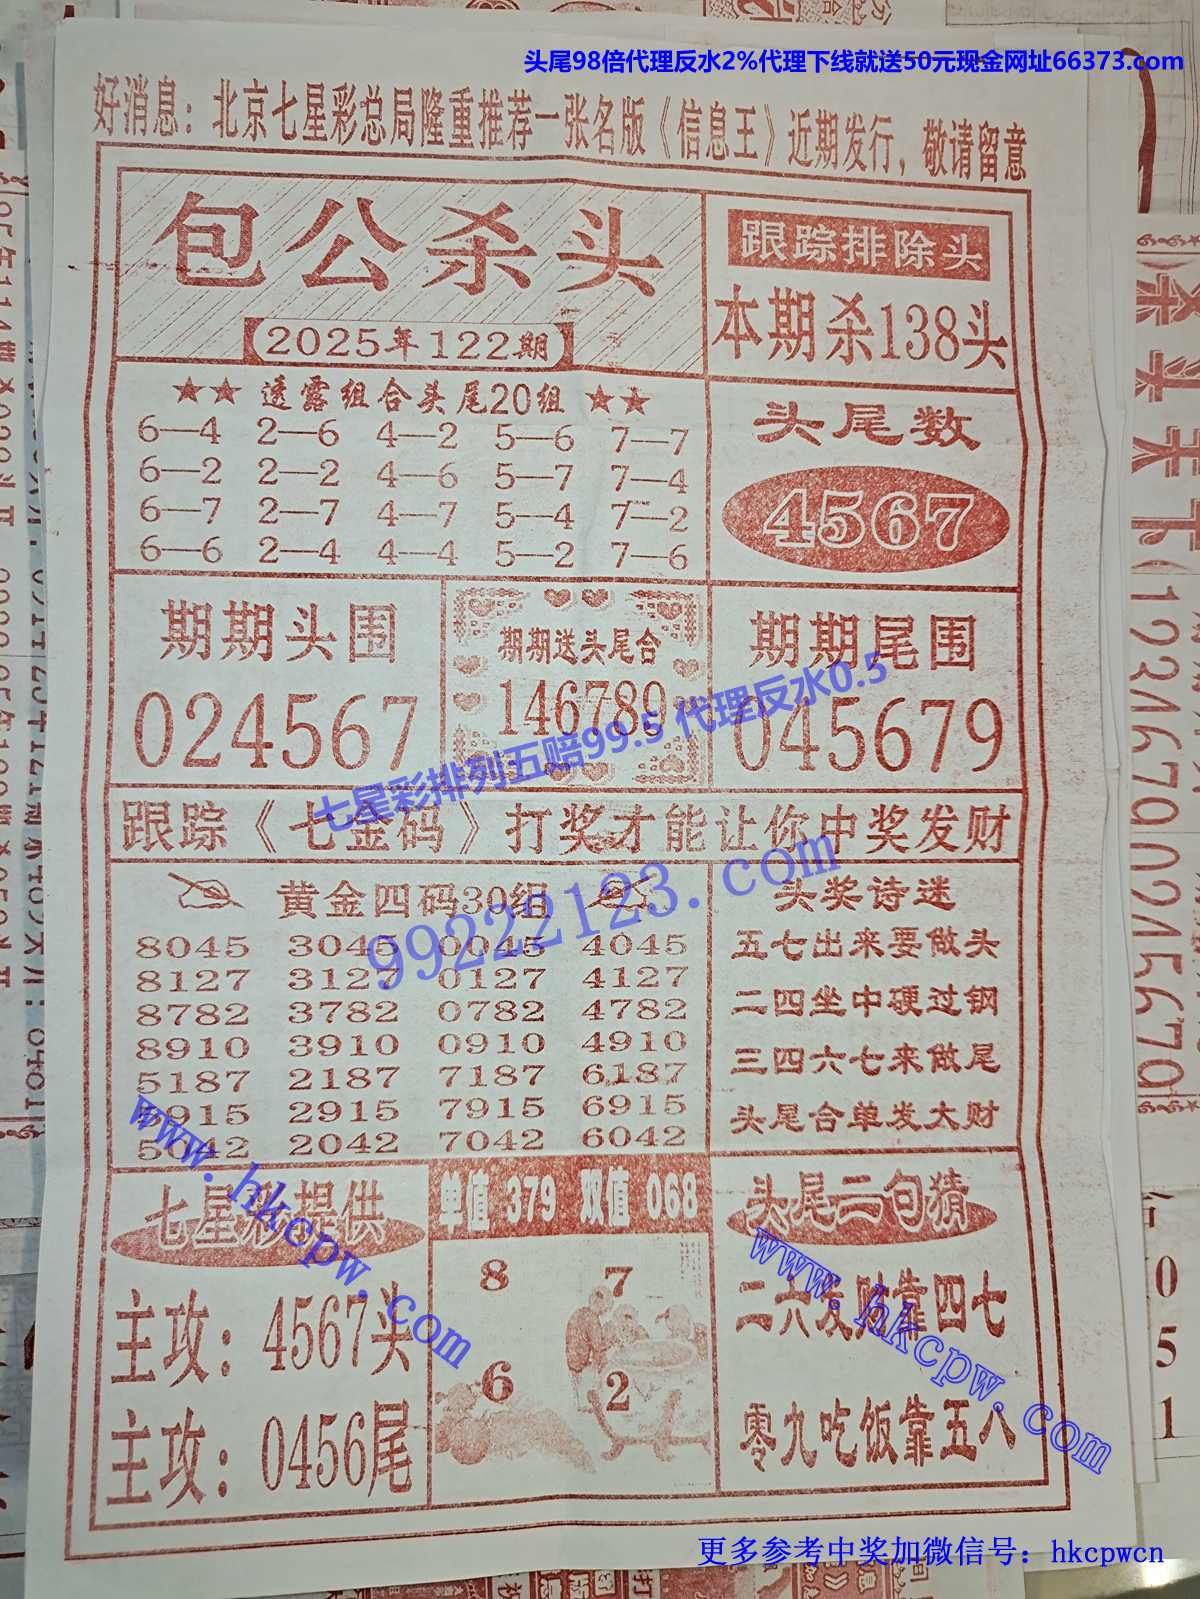 头尾98倍代理反水2%代理下线就送50元现金网址66373.com
好消息：北京七星彩总局隆重推荐一张名版《信息王》近期发行，敬请留意
包公杀头
【2025年122期】
跟踪排除头
本期杀138头
★★ 透露组合头尾20组 ★★
6—4 2—6 4—2 5—6 7—7
6—2 2—2 4—6 5—7 7—4
6—7 2—7 4—7 5—4 7—2
6—6 2—4 4—4 5—2 7—6
头尾数
4567
期期头围
024567
期期送头尾合
146789
期期尾围
045679
七星彩排列五赔99.5 代理反水0.5
跟踪《七金码》打奖才能让你中奖发财
99222123.com
黄金四码30组
8045 3045 0045 4045
8127 3127 0127 4127
8782 3782 0782 4782
8910 3910 0910 4910
5187 2187 7187 6187
5915 2915 7915 6915
5042 2042 7042 6042
头奖诗迷
五七出来要做头
二四坐中硬过钢
三四六七来做尾
头尾合单发大财
www.hkcpw.com
七星彩提供
主攻：4567头
主攻：0456尾
单值 379 双值 068
8 7
6 2
头尾二句猜
二六发财靠四七
零九吃饭靠五八
www.hkcpw.com
更多参考中奖加微信号：hkcpwcn